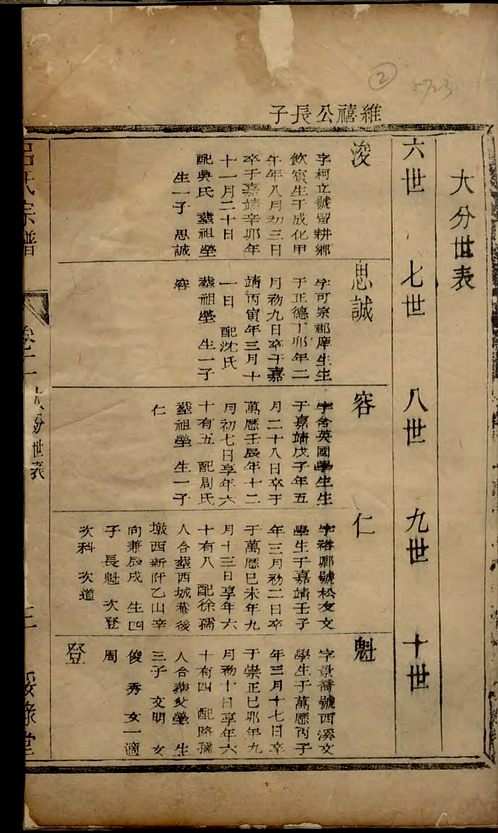 ②
維禧公長子
大分世表
六世
七世
八世
九世
十世
浚
字柯立號留耕鄉
飲賓生于成化甲
午年八月初三日
卒于嘉靖辛卯年
十一月二十日
配奧氏 葬祖塋
生一子 思誠
思誠
字可宗郡庠生生
于正德丁卯年二
月初九日卒于嘉
靖丙寅年三月十
一日 配沈氏
葬祖塋 生一子
容
容
字含英國學生生
于嘉靖戊子年五
月二十八日卒于
萬歷壬辰年十二
月初七日享年六
十有五 配周氏
葬祖塋 生一子
仁
仁
字裕卿號松友文
學生于嘉靖壬子
年三月初二日卒
于萬歷己未年九
月十三日享年六
十有八 配徐孺
人合葬西城菴後
墩西新阡乙山辛
向兼辰戌 生四
子 長魁 次登
次科 次道
魁
字景喬號西溪文
學生于萬歷丙子
年三月十七日卒
于崇正己卯年九
月初十日享年六
十有四 配路孺
人合葬父塋 生
三子 文明 文
俊 秀 女一適
周
登
呂氏宗譜
卷二
大分世表
二
綏祿堂